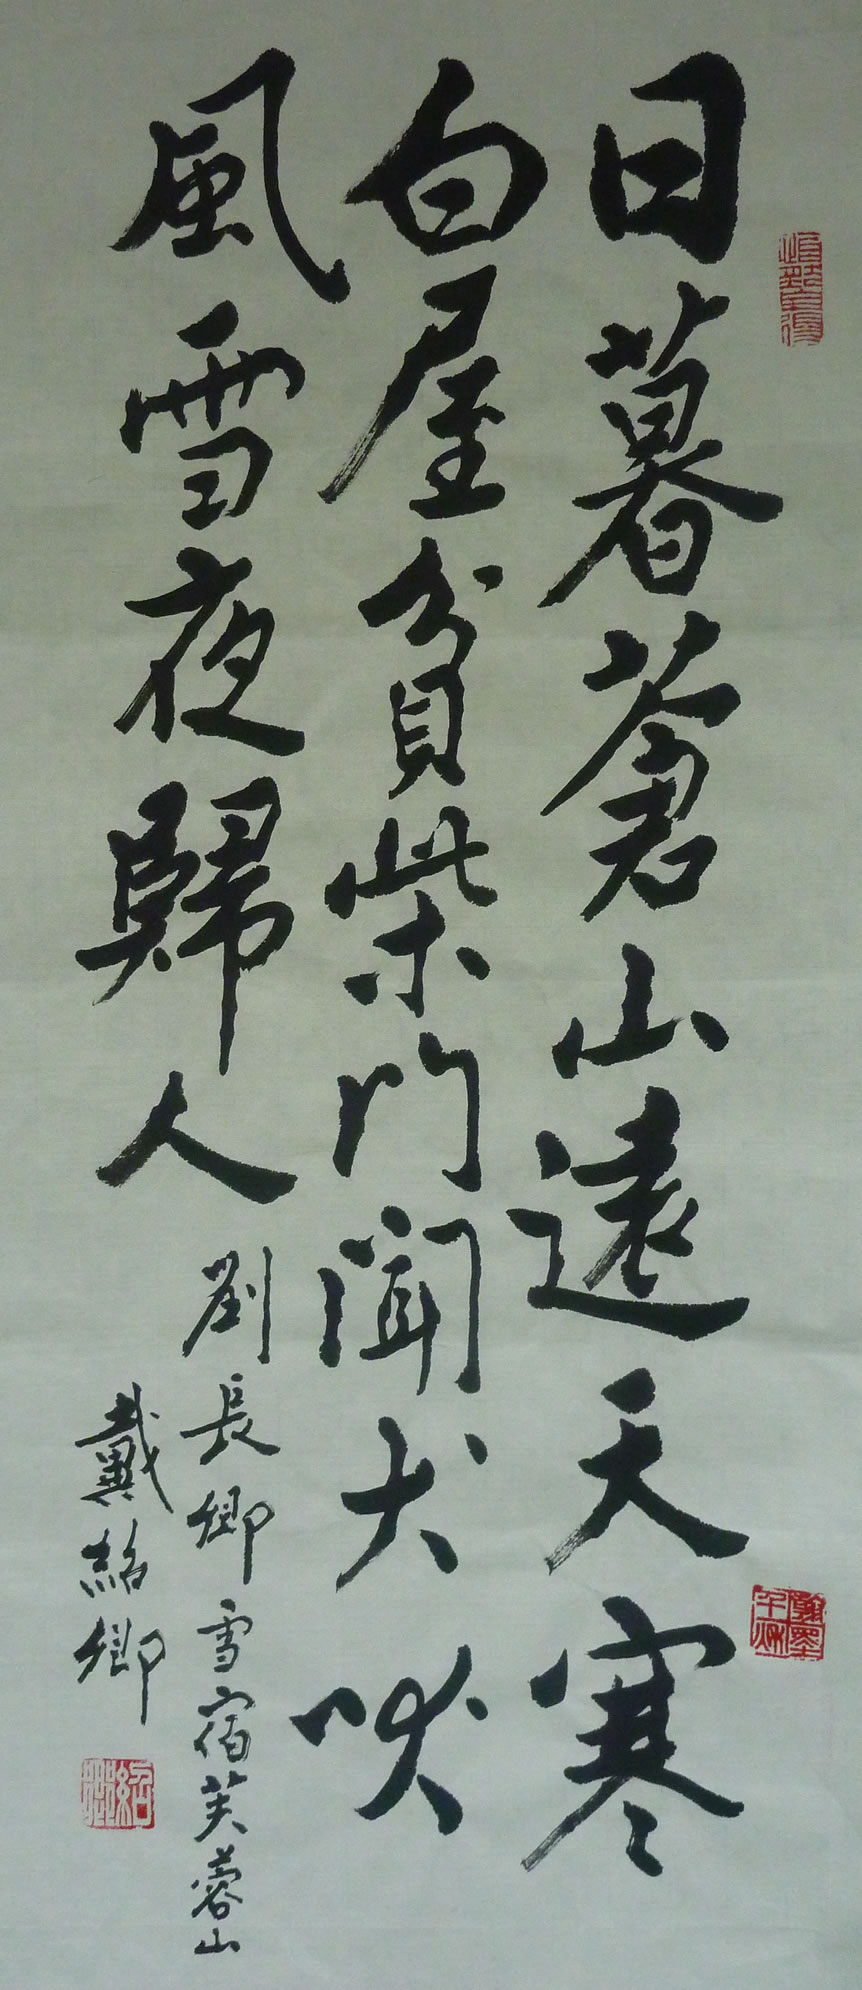 日暮蒼山遠天寒
白屋貧柴門聞犬吠
風雪夜歸人
劉長卿雪宿芙蓉山
戴紹卿
翰墨千秋
紹卿